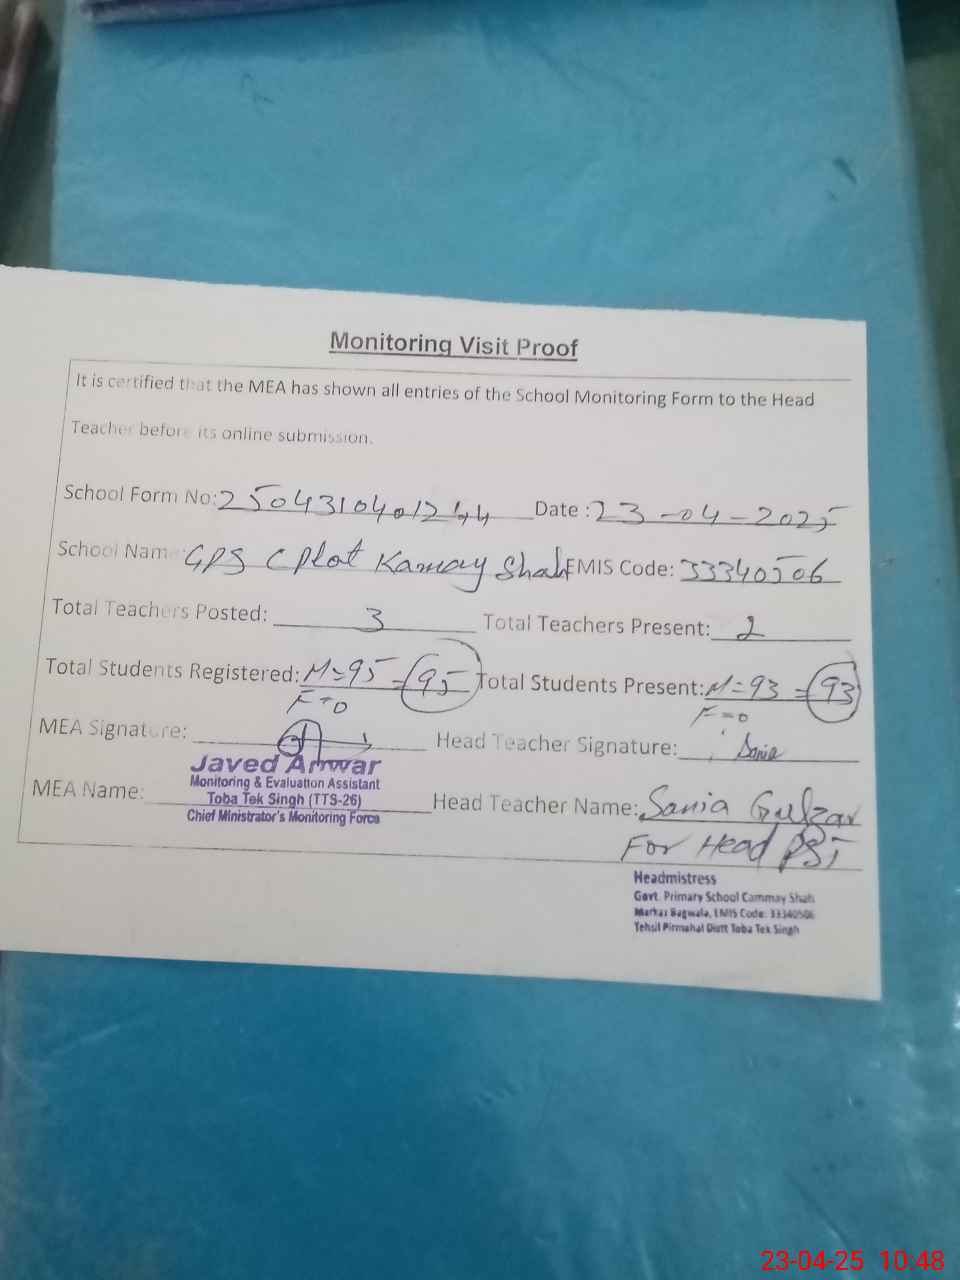 Monitoring Visit Proof
It is certified that the MEA has shown all entries of the School Monitoring Form to the Head
Teacher before its online submission.
School Form No: 2504310401244 Date: 23-04-2025
School Name: GPS C Plot Kamay Shah EMIS Code: 33340506
Total Teachers Posted: 3 Total Teachers Present: 2
Total Students Registered: M=95 = 95 Total Students Present: M=93 = 93
F=0 F=0
MEA Signature: Head Teacher Signature: Sania
Javed Anwar
Monitoring & Evaluation Assistant
MEA Name: Toba Tek Singh (TTS-26) Head Teacher Name: Sania Gulzar
Chief Ministrator's Monitoring Force
For Head PST
Headmistress
Govt. Primary School Cammay Shah
Markaz Bagwala, EMIS Code: 33340506
Tehsil Pirmahal Distt Toba Tek Singh
23-04-25 10:48